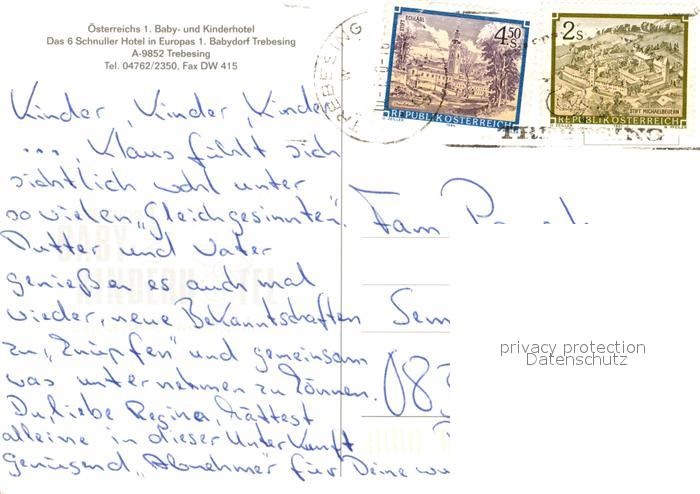 Österreichs 1. Baby- und Kinderhotel
Das 6 Schnuller Hotel in Europas 1. Babydorf Trebesing
A-9852 Trebesing
Tel. 04762/2350, Fax DW 415
Kinder, Kinder, Kinder
... Klaus fühlt sich
sichtlich wohl unter
so vielen "Gleichgesinnten".
Mutter und Vater
genießen es auch mal
wieder, neue Bekanntschaften
zu "knüpfen" und gemeinsam
was unternehmen zu können.
Du, liebe Regina, hättest
alleine in dieser Unterkunft
genügend "Abnehmer" für Deine
BABY
KINDERHOTEL
TREBESING
STIFT SCHLÄGL
4.50 S
REPUBLIK ÖSTERREICH
2 S
STIFT MICHAELBEUERN
REPUBLIK ÖSTERREICH
TREBESING
Fam
Sem
privacy protection
Datenschutz